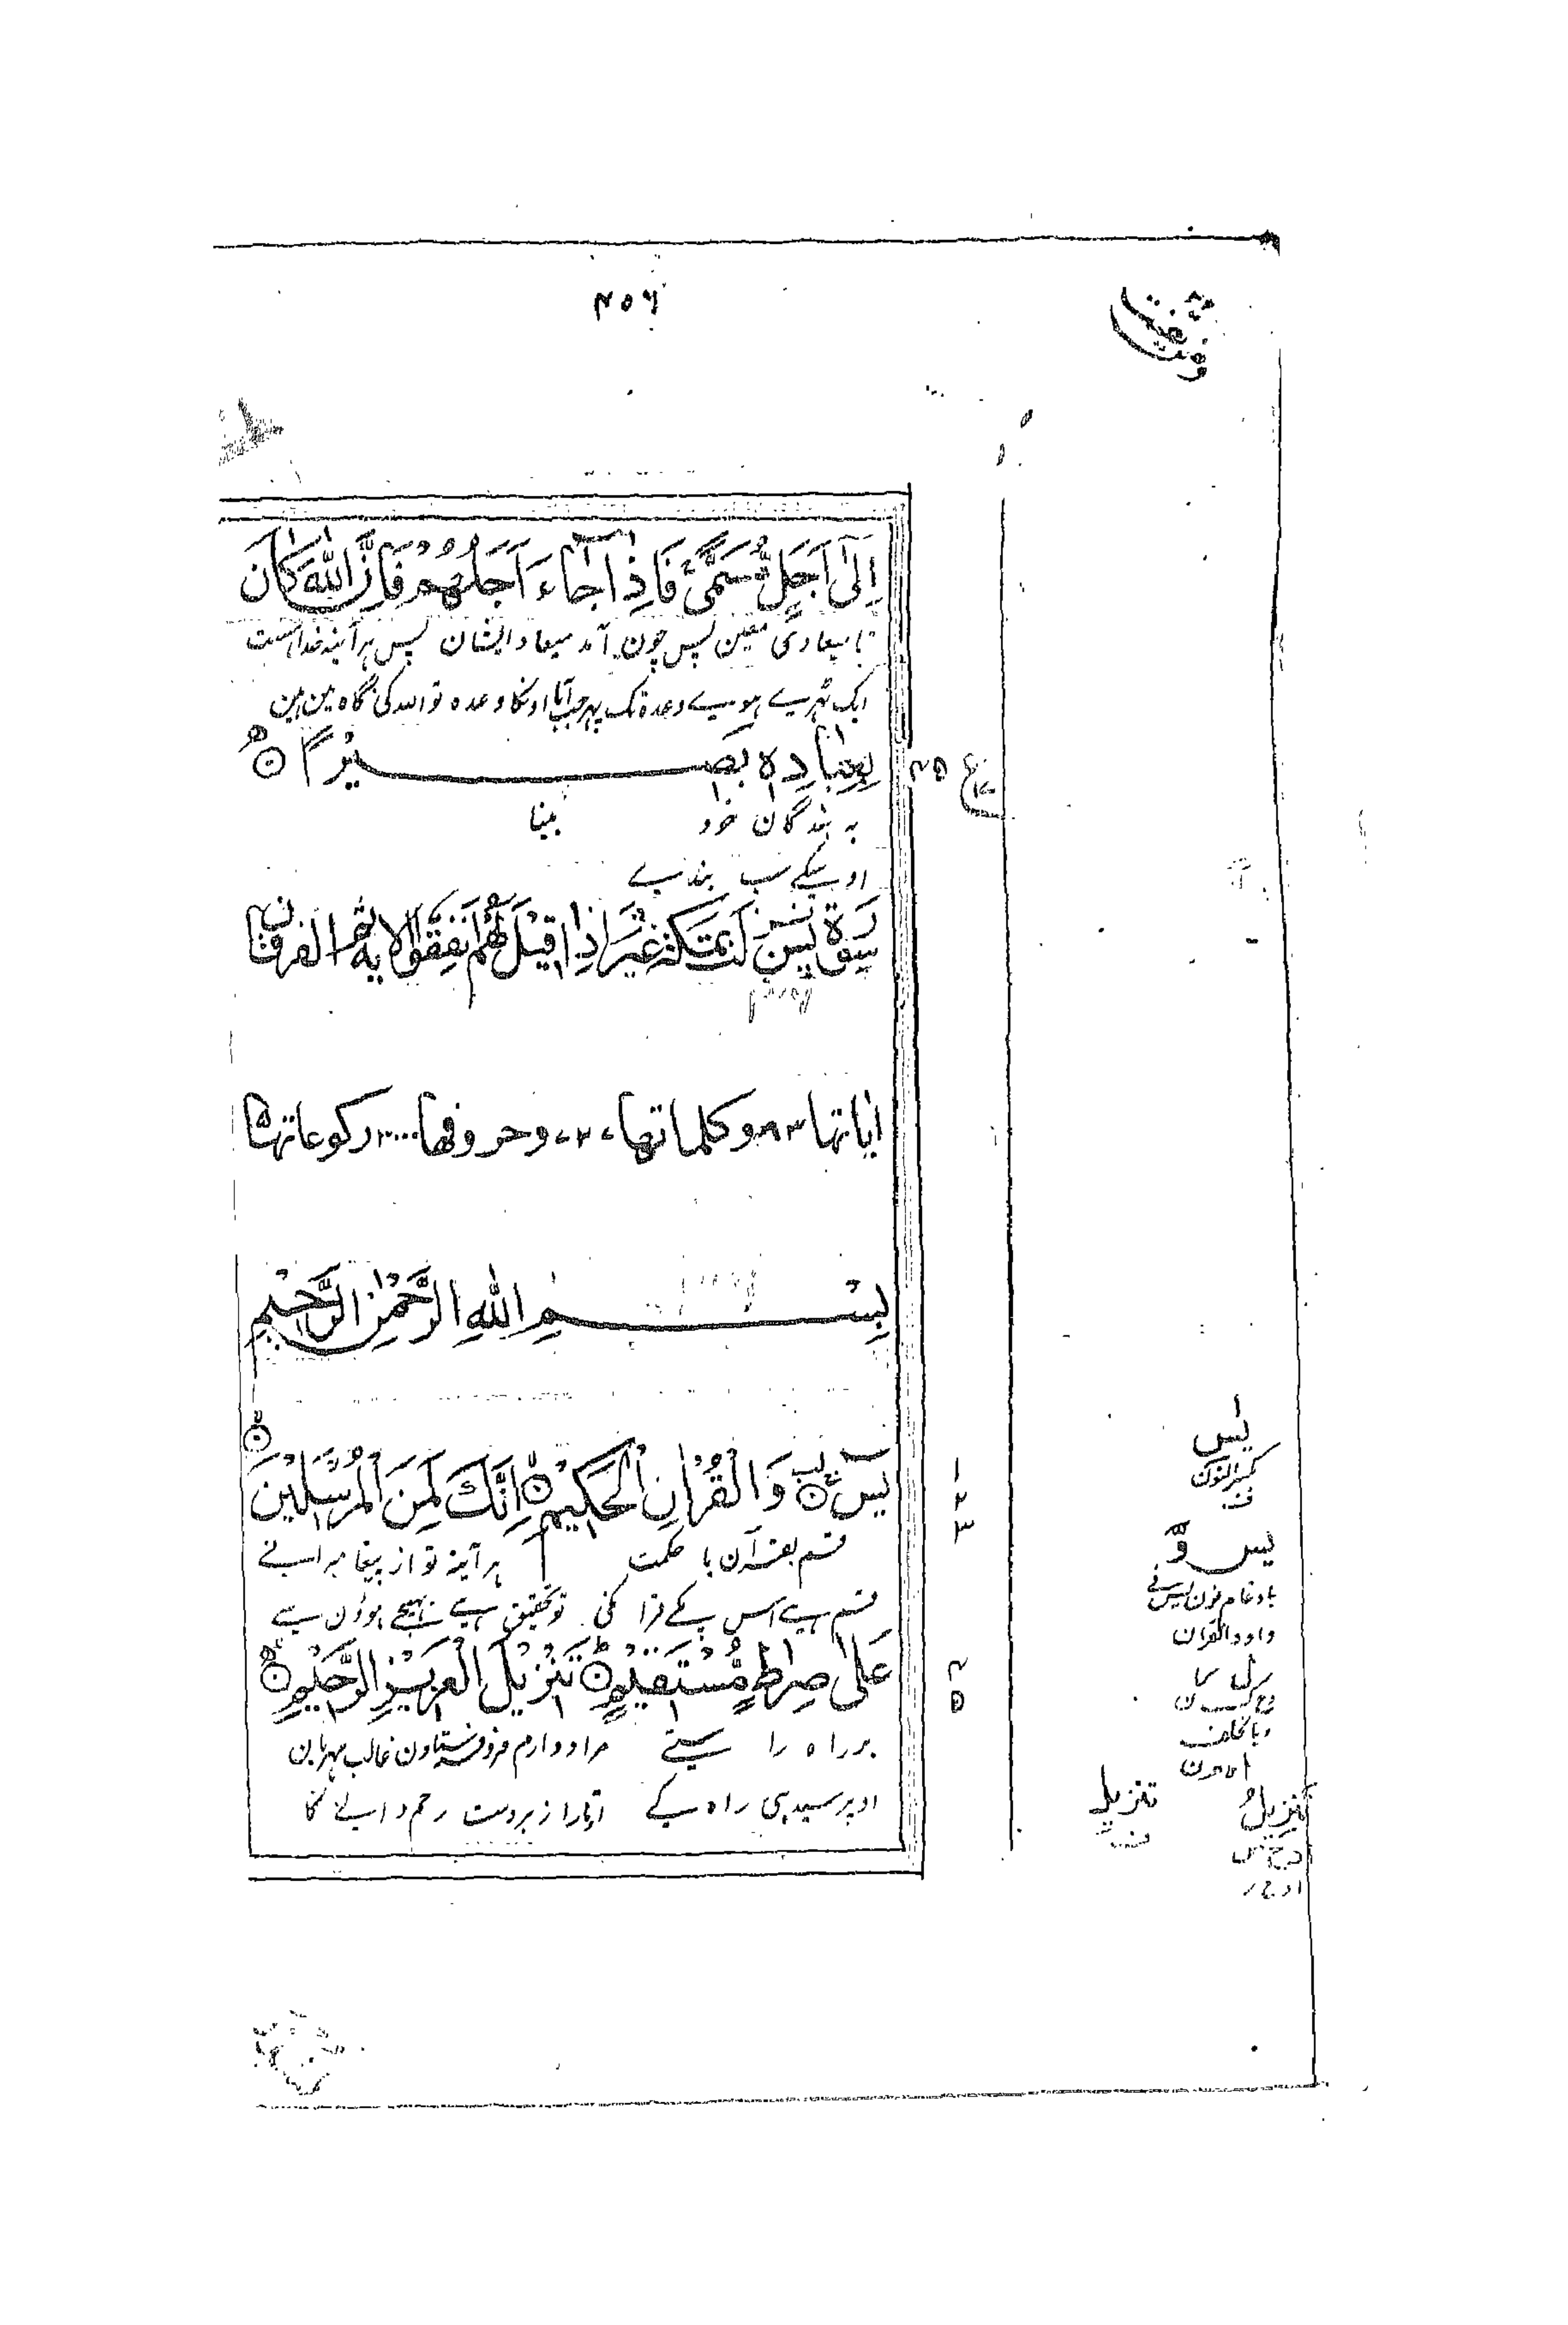 ۴۵۶
اِلٰۤى اَجَلٍ مُّسَمًّى ۚ فَاِذَا جَآءَ اَجَلُهُمْ فَاِنَّ اللّٰهَ كَانَ
تا میعادی معین پس چون آمد میعاد ایشان پس ہر آینه خدا ہست
ایک ٹہرے ہوے وعدہ تک پہر جب آیا اونکا وعدہ تو الله کی نگاہ مین ہین
بِعِبَادِهٖ بَصِيْرًا ۞
۴۵
به بندگان خود بینا
اوسکے سب بندے
سورة يس مكية غير اذا قيل لهم انفقوا الاية ثم الفرقان
اياتها ۸۳ وكلماتها وحروفها ۳۰۰۰ ركوعاتها ۵
بِسْمِ اللّٰهِ الرَّحْمٰنِ الرَّحِيْمِ
يٰسٓ ۞ وَالْقُرْاٰنِ الْحَكِيْمِ ۞ اِنَّكَ لَمِنَ الْمُرْسَلِيْنَ ۞
۱
۲
۳
قسم بقرآن با حکمت ہر آینه تو از پیغامبرانے
قسم ہے اس پکے قرآن کی تو تحقیق ہے بہیجے ہوؤن سے
عَلٰى صِرَاطٍ مُّسْتَقِيْمٍ ۞ تَنْزِيْلَ الْعَزِيْزِ الرَّحِيْمِ ۞
۴
۵
بر راه راستے مراد دارم فرو فرستادن غالب مہربان
اوپر سیدہی راہ کے اتارا زبردست رحم والے کا
يٰس
بکسر النون
يس وَّ
بادغام نون يس فے
واو والقران
وبالخلف
تنزيلُ
تنزيل